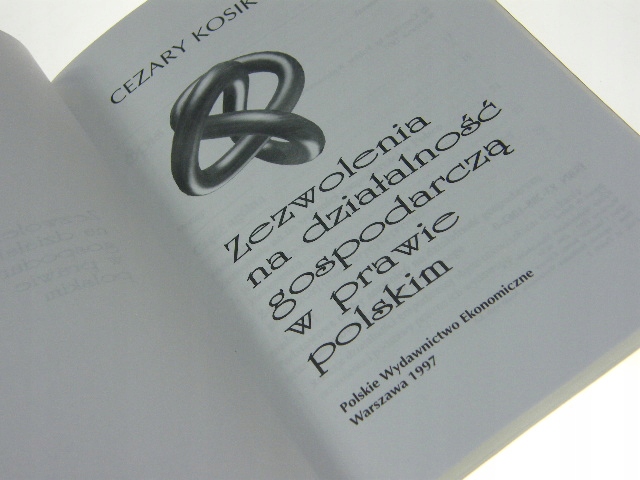 CEZARY KOSIK
Zezwolenia
na działalność
gospodarczą
w prawie
polskim
Polskie Wydawnictwo Ekonomiczne
Warszawa 1997